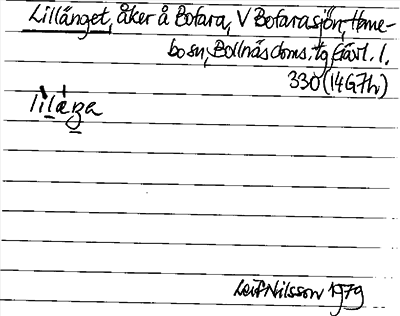 Lillänget, åker å Bofara, V Bofarasjön, Heme-
bo sn, Bollnäs doms. tg Gävl. l.
330 (14G7h)
lilæŋa
Leif Nilsson 1979